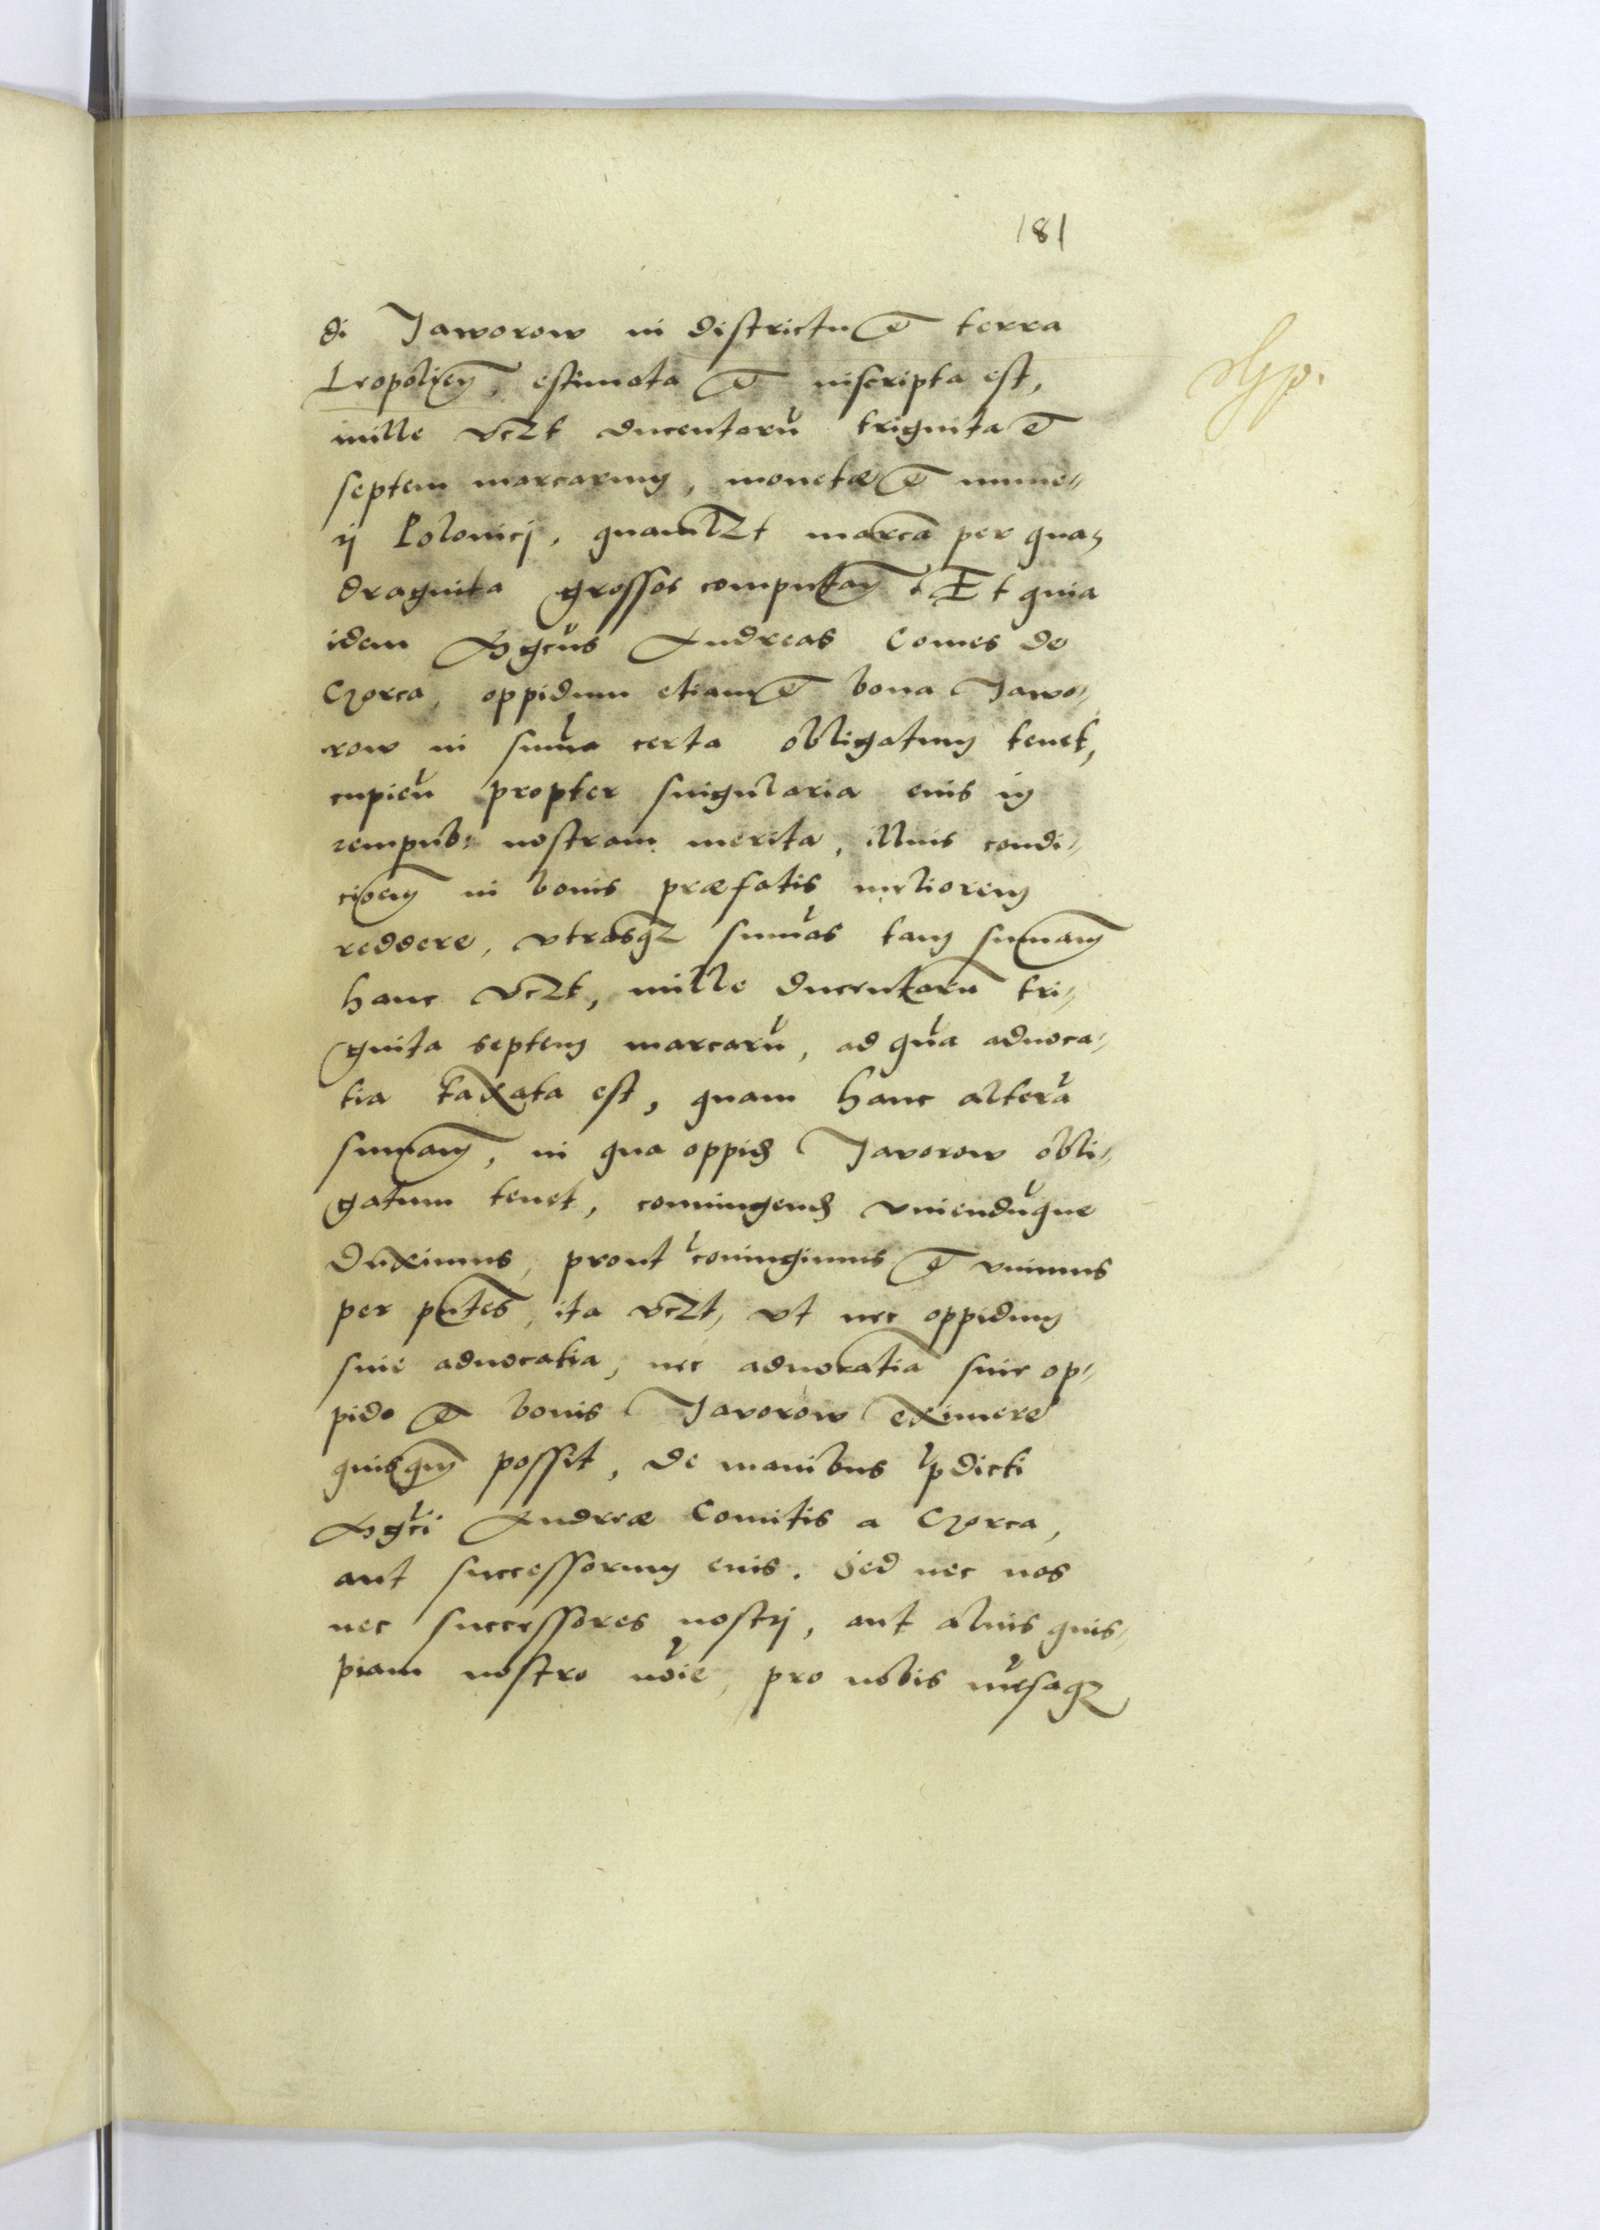 181
di Jaworow in districtu et terra
Leopolien, estimata et inscripta est,
mille vczt ducentarū triginta et
septem marcarum, monetæ et nume-
ri Polonicj, quamlzt marcā per qua-
draginta grossos computan. Et quia
idem Mgcus Andreas Comes de
Gorca, oppidum etiam et bona Jawo-
row in summa certa obligatum tenet,
cupien propter singularia eius in
rempub: nostram merita, illius condi-
cionem in bonis præfatis meliorem
reddere, vtrasqz summas tam summam
hanc vczt, mille ducentarū tri-
ginta septem marcarū, ad quā aduoca-
tia taxata est, quam hanc alterā
summam, in qua oppid Javorow obli-
gatum tenet, coniungend vniendūque
duximus, prout coniungimus et vnimus
per pntes, ita vczt, vt nec oppidum
sine aduocatia, nec aduocatia sine op-
pido et bonis Javorow eximere
quisqm possit, de manibus pdicti
Mgci Andreæ Comitis a Gorca,
aut successorum eius. Sed nec nos
nec successores nostrj, aut alius quis-
piam nostro noie, pro nobis